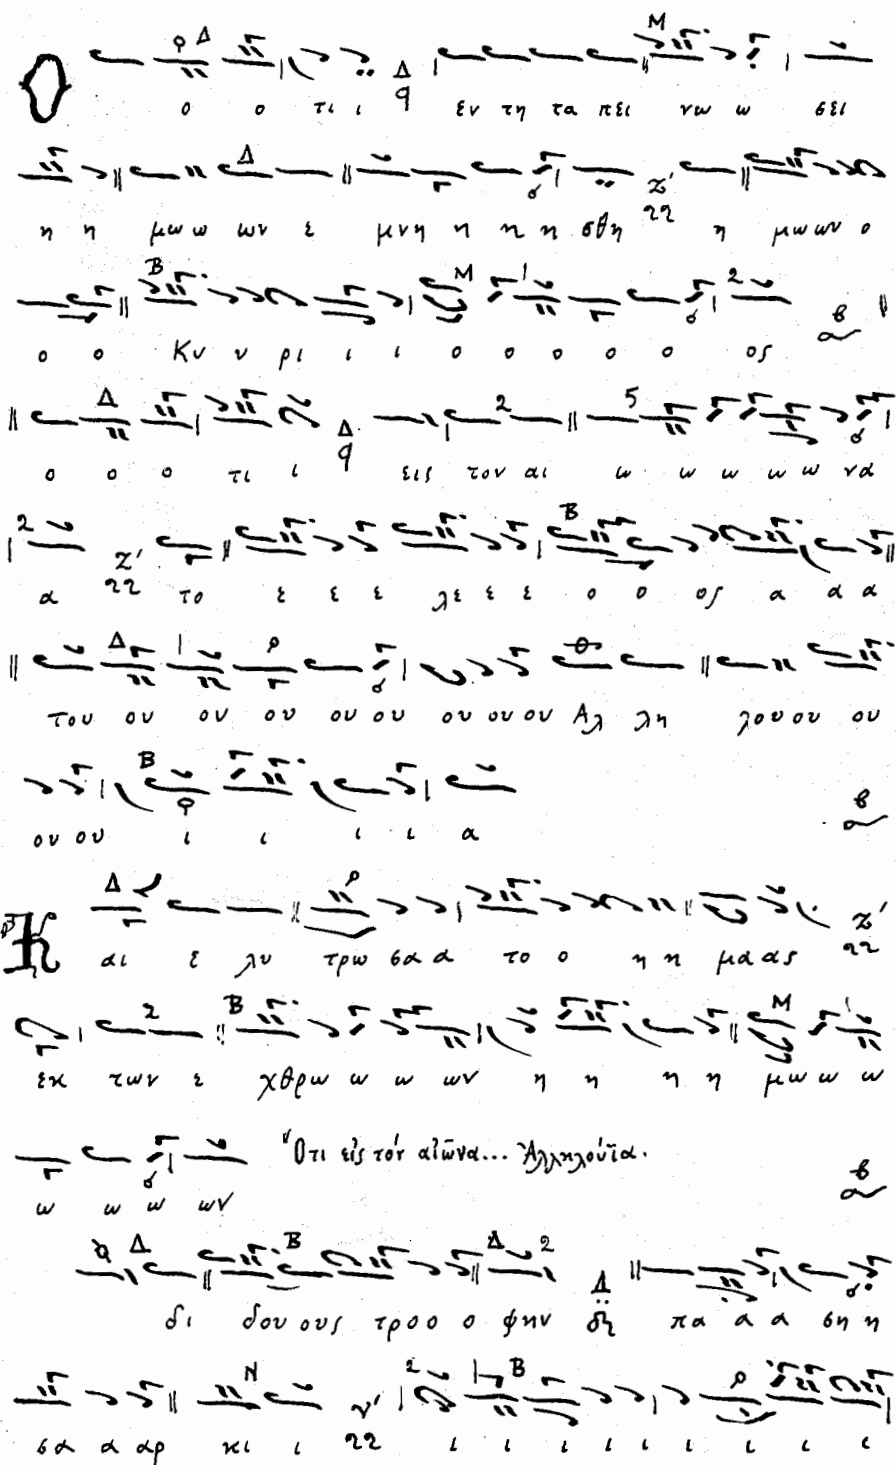 Ο ο ο τι ι εν τη τα πει νω ω σει
η η μω ω ων ε μνη η η η σθη η μω ων ο
ο ο Κυ υ ρι ι ι ο ο ο ο ο ος
ο ο ο τι ι εις τον αι ω ω ω ω ω να
α το ε ε ε λε ε ε ο ο ος α α α
του ου ου ου ου ου ου ου ου Αλ λη λου ου ου
ου ου ι ι ι ι α
Κ αι ε λυ τρω σα α το ο η η μα ας
εκ των ε χθρω ω ω ων η η η η μω ω ω
ω ω ω ων Ὅτι εἰς τόν αἰῶνα... Ἀλληλούϊα.
δι δου ους τρο ο ο φην πα α α ση η
σα α αρ κι ι ι ι ι ι ι ι ι ι ι